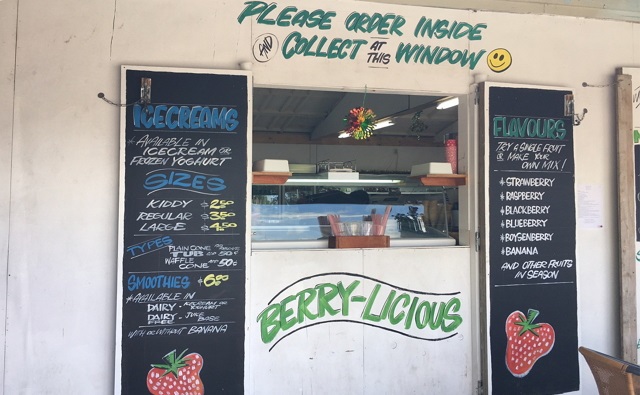 PLEASE ORDER INSIDE
AND COLLECT AT THIS WINDOW
ICECREAMS
* AVAILABLE IN
ICECREAM OR
FROZEN YOGHURT
SIZES
KIDDY $2.50
REGULAR $3.50
LARGE $4.50
TYPES
PLAIN CONE
TUB 50¢
WAFFLE
CONE 50¢
SMOOTHIES $6.00
* AVAILABLE IN
DAIRY - ICECREAM OR YOGHURT
DAIRY FREE - JUICE BASE
WITH OR WITHOUT BANANA
BERRY-LICIOUS
FLAVOURS
TRY A SINGLE FRUIT
& MAKE YOUR
OWN MIX!
* STRAWBERRY
* RASPBERRY
* BLACKBERRY
* BLUEBERRY
* BOYSENBERRY
* BANANA
AND OTHER FRUITS
IN SEASON